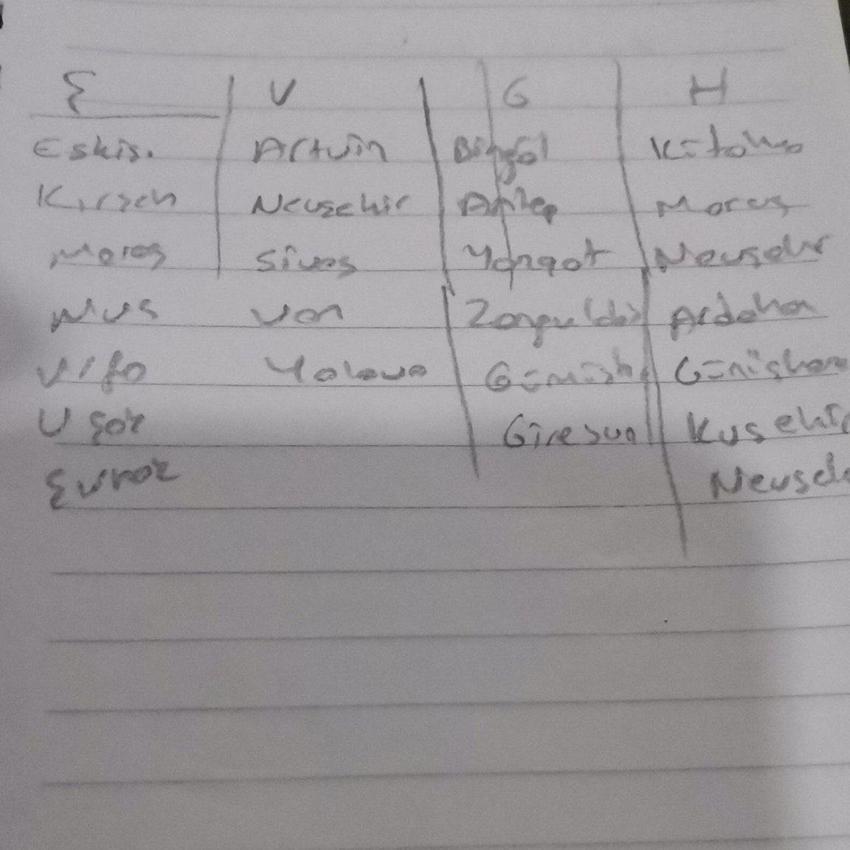 E V G H
Eskis. Artvin Bingöl Kütahya
Kırşeh Nevşehir Antep Maraş
Maraş Sivas Yozgat Nevşehr
Mus Van Zongulda Ardahan
Urfa Yalova Gümüşh Gümüşhane
Usak Giresun Kırşehir
Nevşeh